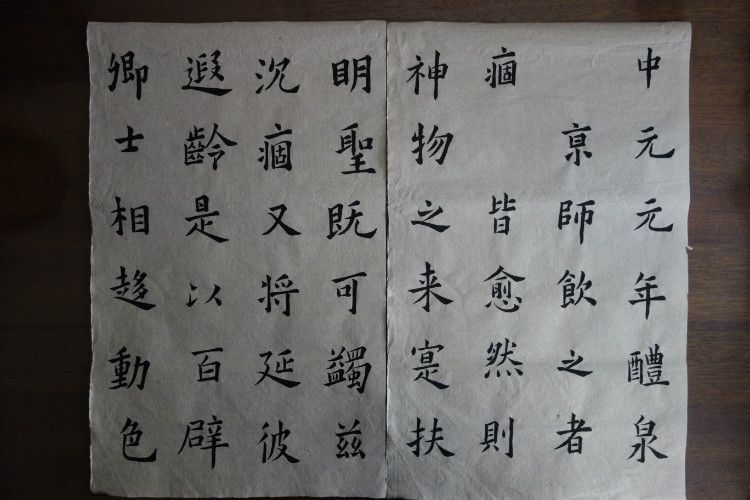 中元元年醴泉
亰師飲之者
痼皆愈然則
神物之来寔扶
眀聖既可蠲兹
沉痼又将延彼
遐齡是以百辟
卿士相趍動色